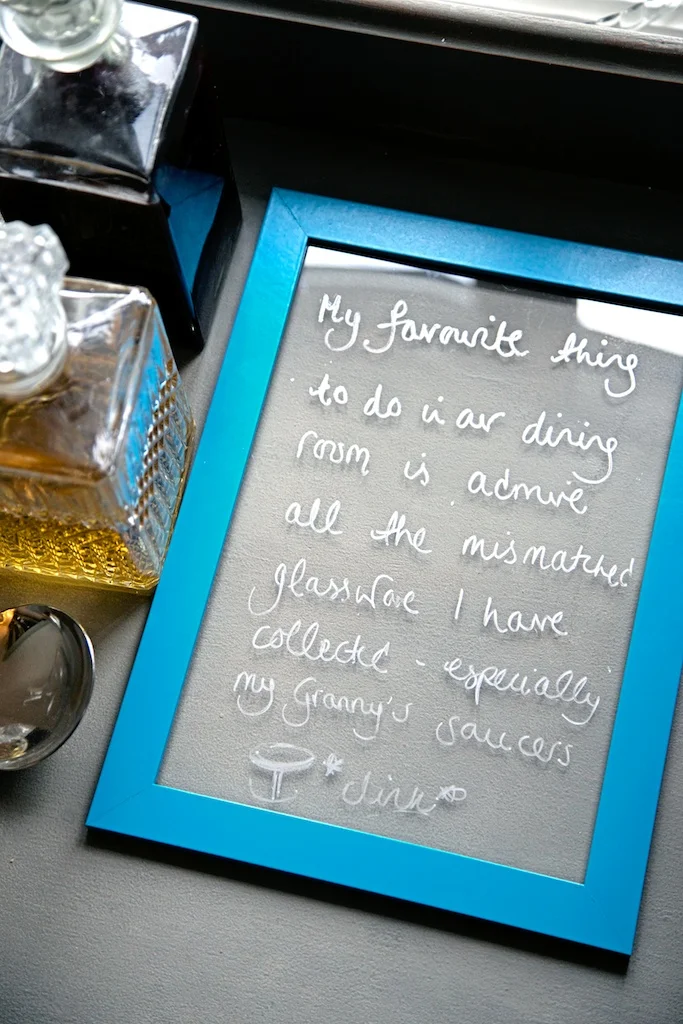 My favourite thing
to do in our dining
room is admire
all the mismatched
glassware I have
collected - especially
my Granny's saucers
*clink*